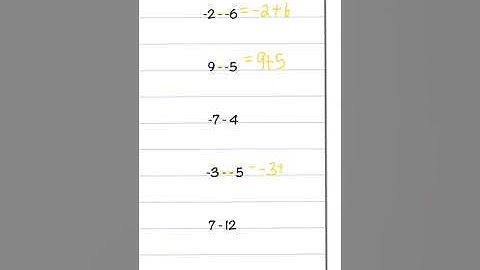 -2--6 = -2+6
9--5 = 9+5
-7-4
-3--5 = -3+
7-12